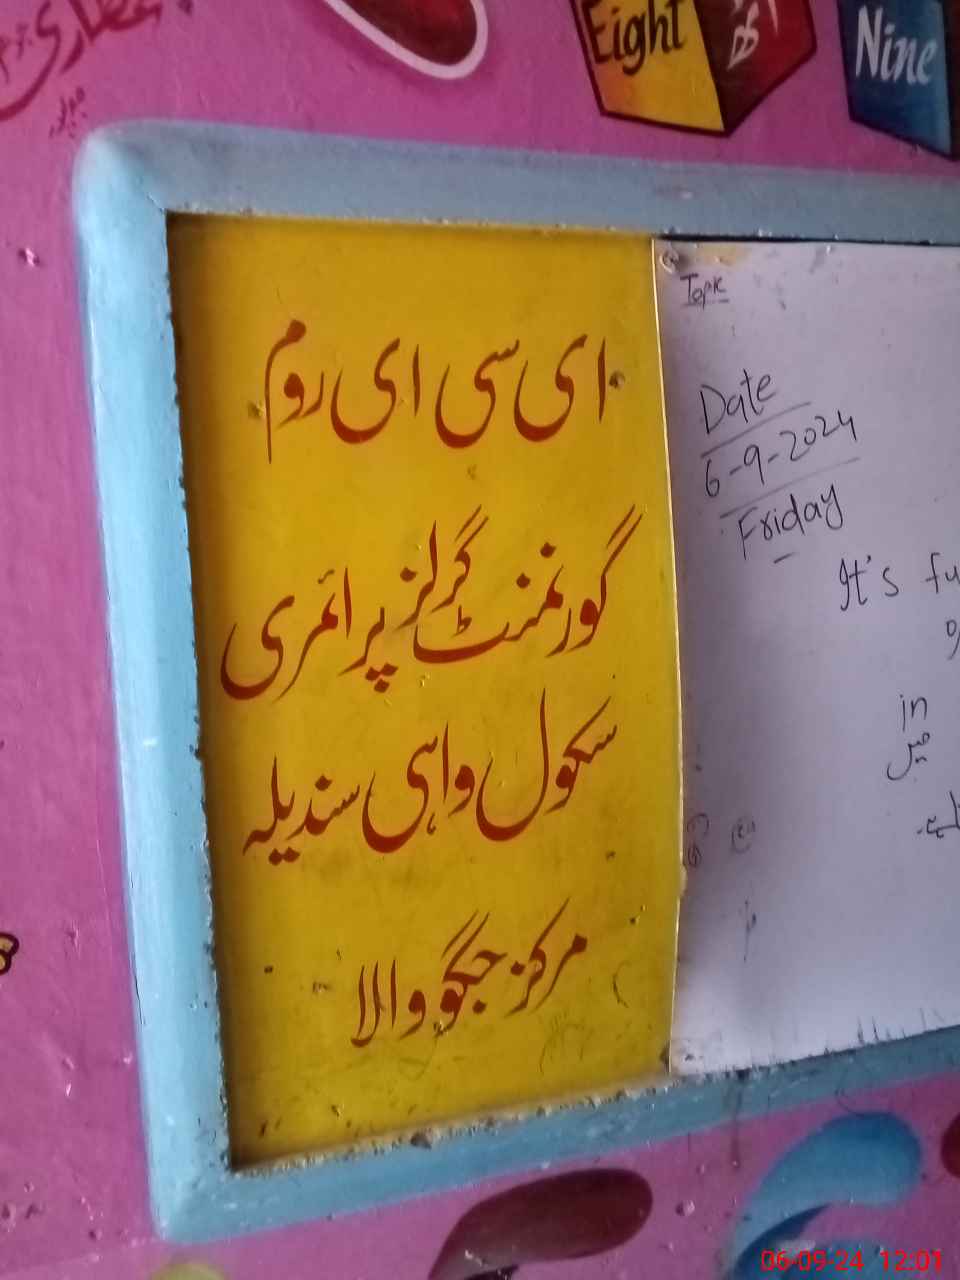 Eight
Nine
ای سی ای روم
گورنمنٹ گرلز پرائمری
سکول واہی سندیلہ
مرکز جگو والا
Topic
Date
6-9-2024
Friday
It's fu
in
میں
06-09-24 12:01